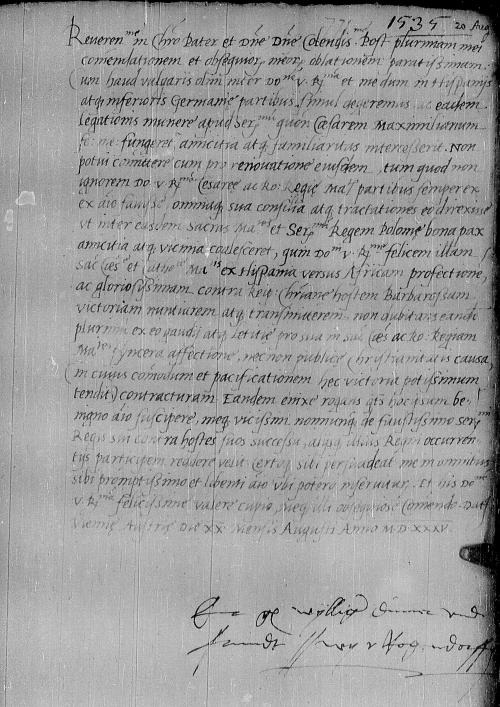 1535 20 Aug
Reveren^me in Chro Pater et Dne Dne Colendis^me Post plurimam mei
comendationem et obsequior meor oblationem paratissimam.
Cum haud vulgaris olim inter Do^nem v. R^mam et me dum in Hyspanijs
atq inferioris Germanie partibus simul ageremus ac eadem
legationis munere apud Ser^mum quon Cesarem Maximilianum
fe: me: fungeret amicitia atq familiaritas intercesserit. Non
potui comittere cum pro renovatione eiusdem, tum quod non
ignorem Do v. R^mam Cesaree ac Ro: Regie Ma^ti partibus semper ex
ex aio favisse, omniaq sua consilia atq tractationes eo direxisse
ut inter easdem Sacras Ma^tes et Ser^mum Regem Polonie bona pax
amicitia atq vicinia coalesceret, quin Do^ni v. R^me felicem illam
Sac Ces et Catho^ce Ma^tis ex Hyspania versus Africam profectionem,
ac gloriosissimam contra Rei: Chriane hostem Barbarossam
victoriam nunciarem atq transmitterem. non dubitans eandem
plurimum ex eo gaudij atq letitie pro sua in sac Ces ac Ro. Regiam
Ma^tes syncera affectione, necnon publice Christianitatis causa,
(in cuius comodum et pacificationem hec victoria potissimum
tendit) contracturam. Eandem enixe rogans qts hoc ipsum be-
nigno aio suscipere, meq vicissim nonnunq de faustissimo Ser^mi
Regis sui contra hostes suos successu, alijsq illius Regni occurren-
tijs participem reddere velit. Certoq sibi persuadeat me in omnibus
sibi promptissimo et libenti aio ubi potero inserviturum. Et his Do^nem
v. R^mam felicissime valere cupio, meq illi obsequiose Comendo. Datt
Vienne Austrie Die XX Mensis Augusti Anno M.D.XXXV.
williger